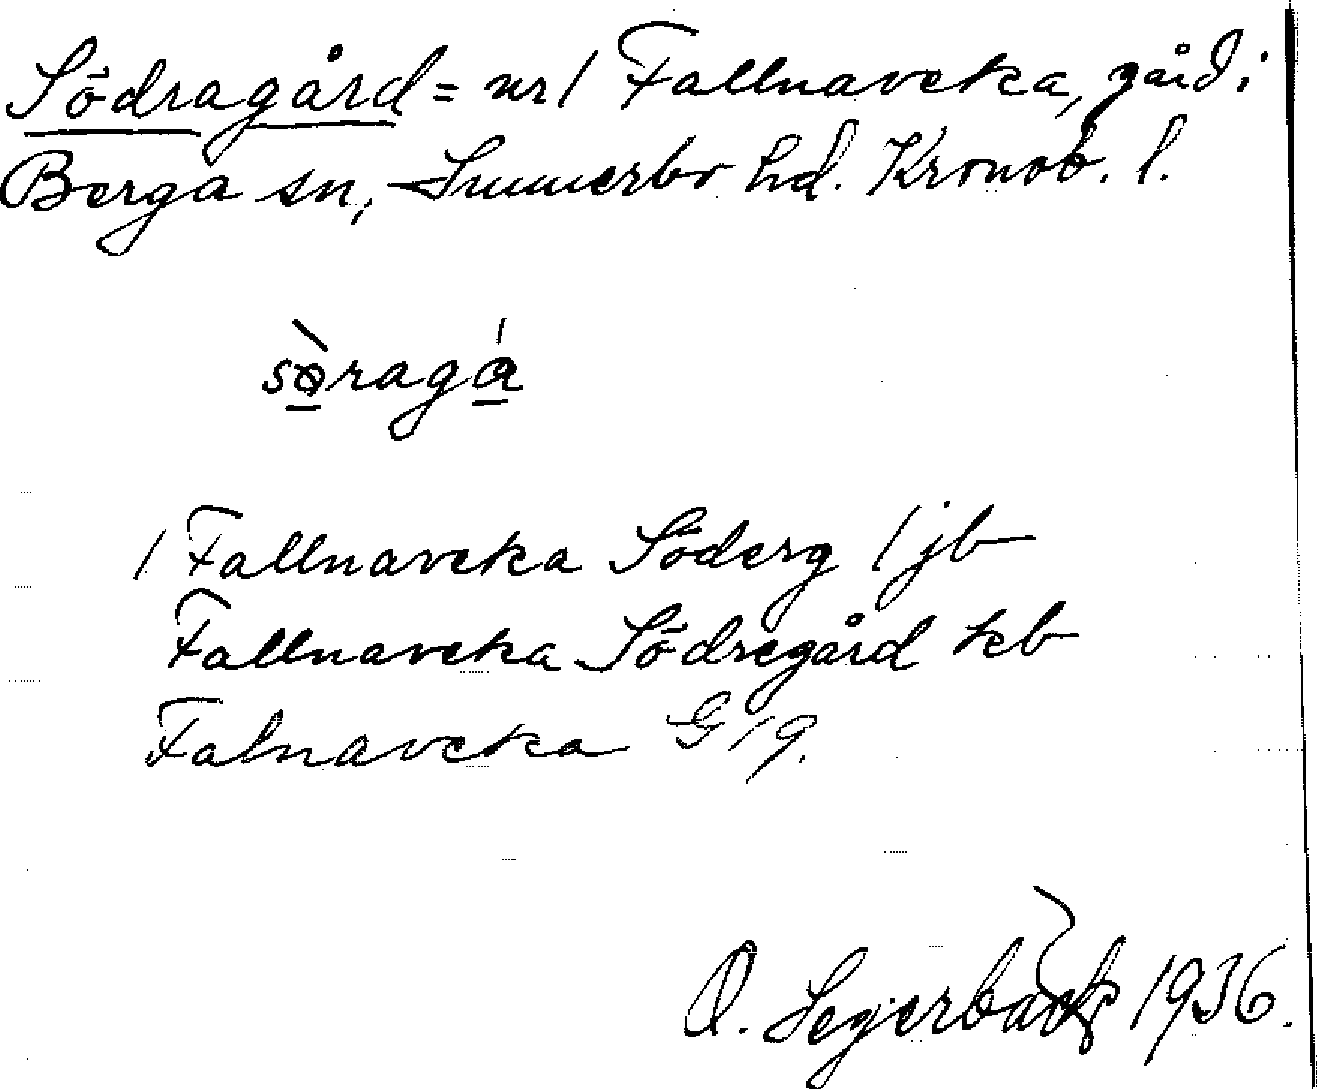 Södragård = nr 1 Fallnaveka, gård i
Berga sn, Sunnerbo hd. Kronob. l.
sø̀ragá
1 Fallnaveka Söderg 1 jb
Fallnaveka Södregård kb
Falnaveka G 19.
O. Segerbäck 1936.